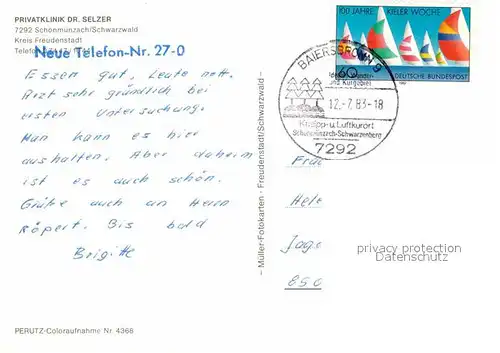 PRIVATKLINIK DR. SELZER
7292 Schonmunzach/Schwarzwald
Kreis Freudenstadt
Neue Telefon-Nr. 27-0
Essen gut, Leute nett.
Arzt sehr gründlich bei
ersten Untersuchung.
Man kann es hier
aushalten. Aber daheim
ist es auch schön.
Grüße auch an Herrn
Röpert. Bis bald
Brigitte
PERUTZ-Coloraufnahme Nr. 4366
– Müller-Fotokarten · Freudenstadt/Schwarzwald –
100 JAHRE KIELER WOCHE
60
DEUTSCHE BUNDESPOST
BAIERSBRONN 9
und Kurgebiet
12.-7.83-18
Kneipp-u.Luftkurort
Schönmünzach-Schwarzenberg
7292
Frau
Hele
Jags
850
privacy protection
Datenschutz